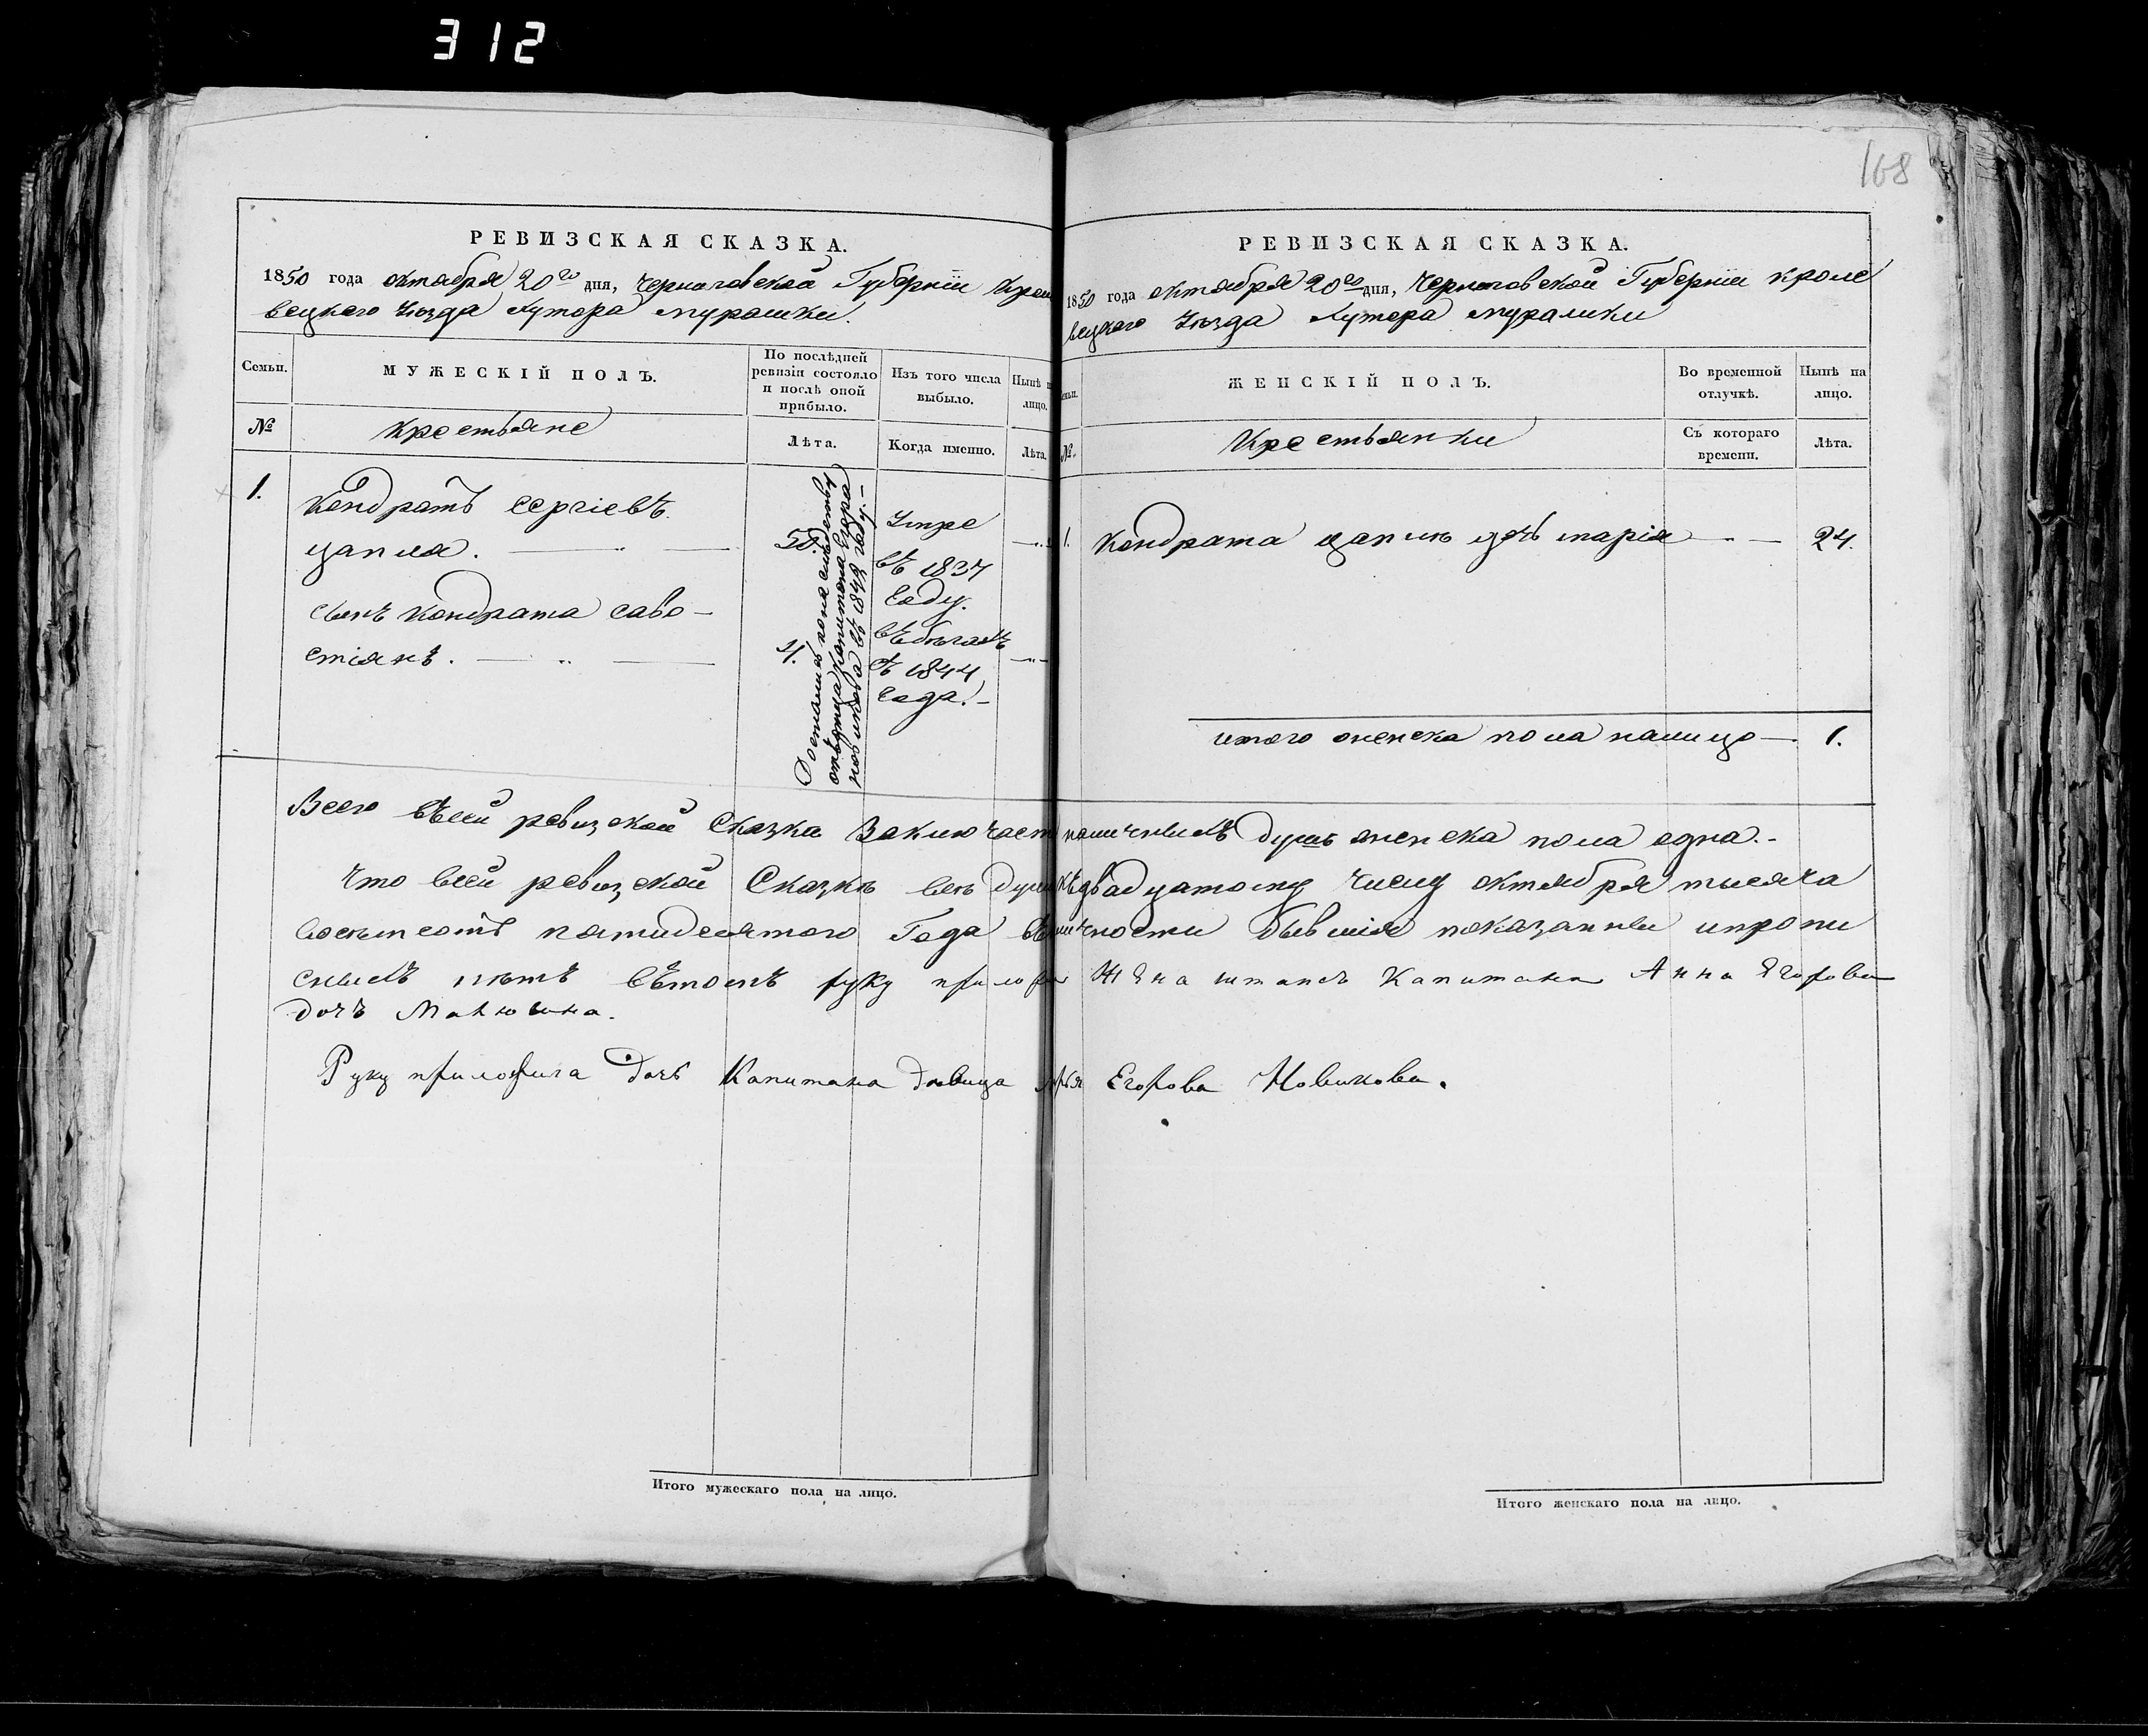 312
168
РЕВИЗСКАЯ СКАЗКА.
1850 года октября 20го дня, Черниговской Губерніи Кроле
вецкого Уезда Хутора Мурашки.
Семьи.
МУЖЕСКІЙ ПОЛЪ.
По послѣдней
ревизіи состояло
и послѣ оной
прибыло.
Изъ того числа
выбыло.
Нынѣ н
лицо.
№
Крестьяне
Лѣта.
Когда именно.
Лѣта.
1.
Кондратъ Сергіевъ
цапля.
50.
Умре
въ 1837
Году.
сынъ Кондрата Саво-
стіянъ.
4.
въ бегахъ
съ 1844
Года.
Достались по наследству
отъ отца Капитана Егора
Новикова въ 1848 году.
РЕВИЗСКАЯ СКАЗКА.
1850 года октября 20го дня, Черниговской Губерніи Кроле
вецкого Уезда Хутора Мурашки
ЖЕНСКІЙ ПОЛЪ.
Во временной
отлучкѣ.
Нынѣ на
лицо.
№.
Крестьянки
Съ котораго
времени.
Лѣта.
1.
Кондрата цапли дочь Марія
24.
итого женска пола налицо 1.
Всего въ сей ревизской Сказки Заключает наличныхъ душъ женска пола одна.
Что в сей ревизской Сказкѣ всѣ души къ двадцатому числу октября тысяча
восемсотъ пятидесятого Года въ личности бывшія показанны и пропи
сныхъ нѣтъ въ томъ руку прилож Жена штапсъ Капитана Анна Егорова
дочь
Руку приложила дочь Капитана девица Егорова Новикова.
Итого мужескаго пола на лицо.
Итого женскаго пола на лицо.